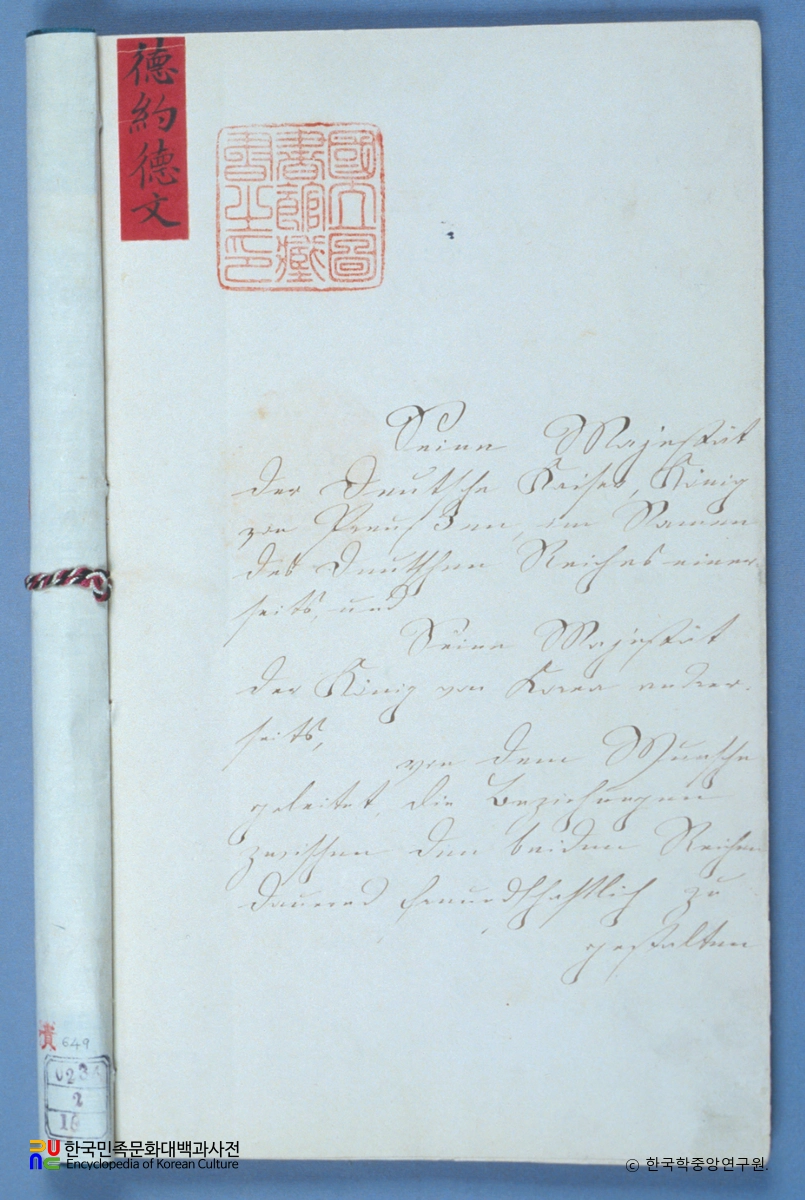 德約德文
國立圖
書館藏
書之印
Seine Majestät
der Deutsche Kaiser, König
von Preußen, im Namen
des Deutschen Reiches einer-
seits, und
Seine Majestät
der König von Korea andrer-
seits,
von dem Wunsche
geleitet, die Beziehungen
zwischen den beiden Reichen
dauernd freundschaftlich zu
gestalten
貴 649
2
한국민족문화대백과사전
Encyclopedia of Korean Culture
© 한국학중앙연구원.